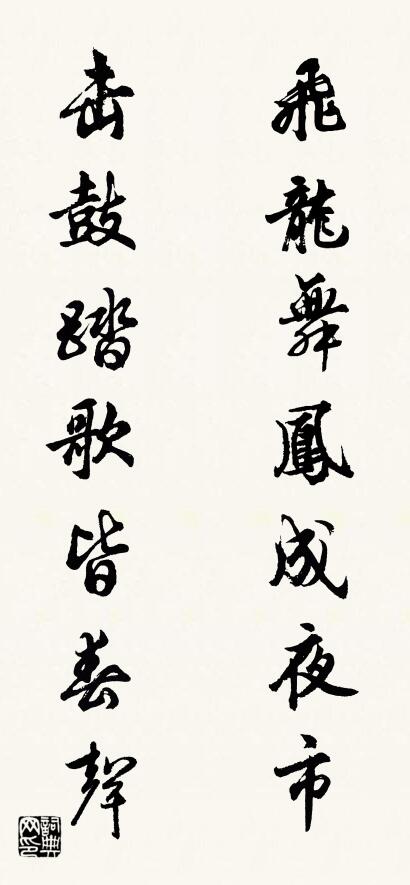 飛龍舞鳳成夜市
击鼓踏歌皆春聲
詞典网印